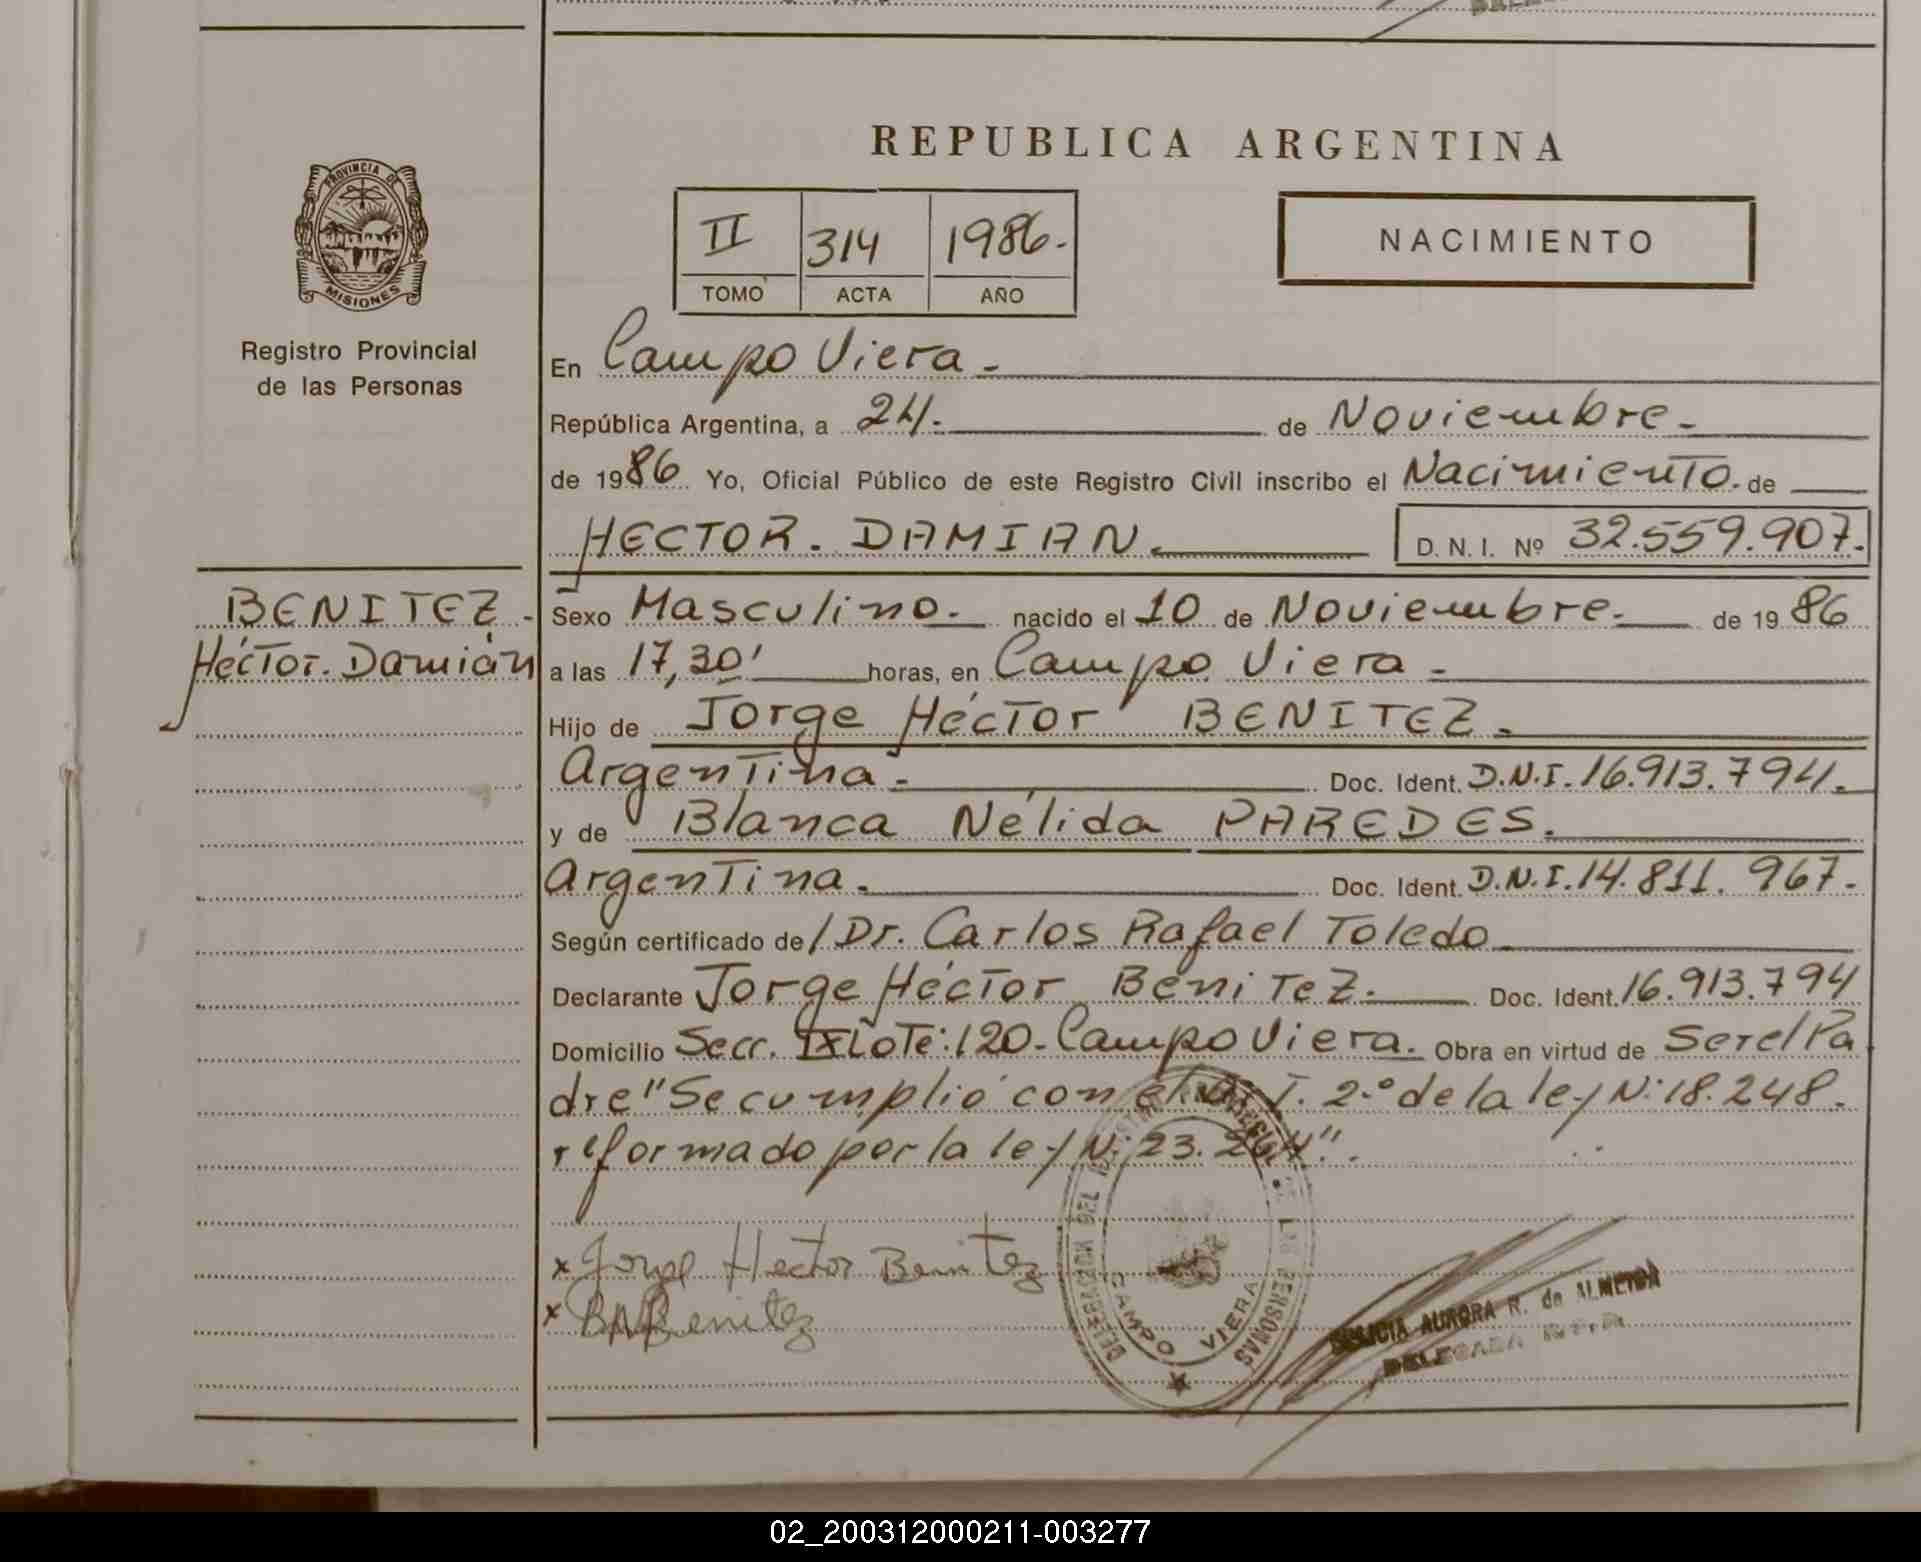 REPUBLICA ARGENTINA
PROVINCIA DE
MISIONES
Registro Provincial
de las Personas
II 314 1986.-
TOMO ACTA AÑO
NACIMIENTO
En Campo Viera.-
República Argentina, a 24.- de Noviembre.-
de 1986 Yo, Oficial Público de este Registro Civil inscribo el Nacimiento. de
HECTOR. DAMIAN. D. N. I. Nº 32.559.907.-
BENITEZ.-
Héctor. Damián
Sexo Masculino.- nacido el 10 de Noviembre.- de 1986
a las 17,30' horas, en Campo Viera.-
Hijo de Jorge Héctor BENITEZ.-
Argentina.- Doc. Ident. D.N.I. 16.913.794.-
y de Blanca Nélida PAREDES.
Argentina.- Doc. Ident. D.N.I. 14.811.967.-
Según certificado de/ Dr. Carlos Rafael Toledo
Declarante Jorge Héctor Benitez.- Doc. Ident. 16.913.794
Domicilio Secc. IX Lote: 120- Campo Viera.- Obra en virtud de Ser el Pa
dre "Se cumplió con el Art. 2.º de la ley N: 18.248.
reformado por la ley N: 23.264".
x Jorge Hector Benitez
x BNBenitez
DELEGACION DEL REGISTRO DE LAS PERSONAS
CAMPO VIERA
DELICIA AURORA R. de ALMEIDA
DELEGADA
02_200312000211-003277